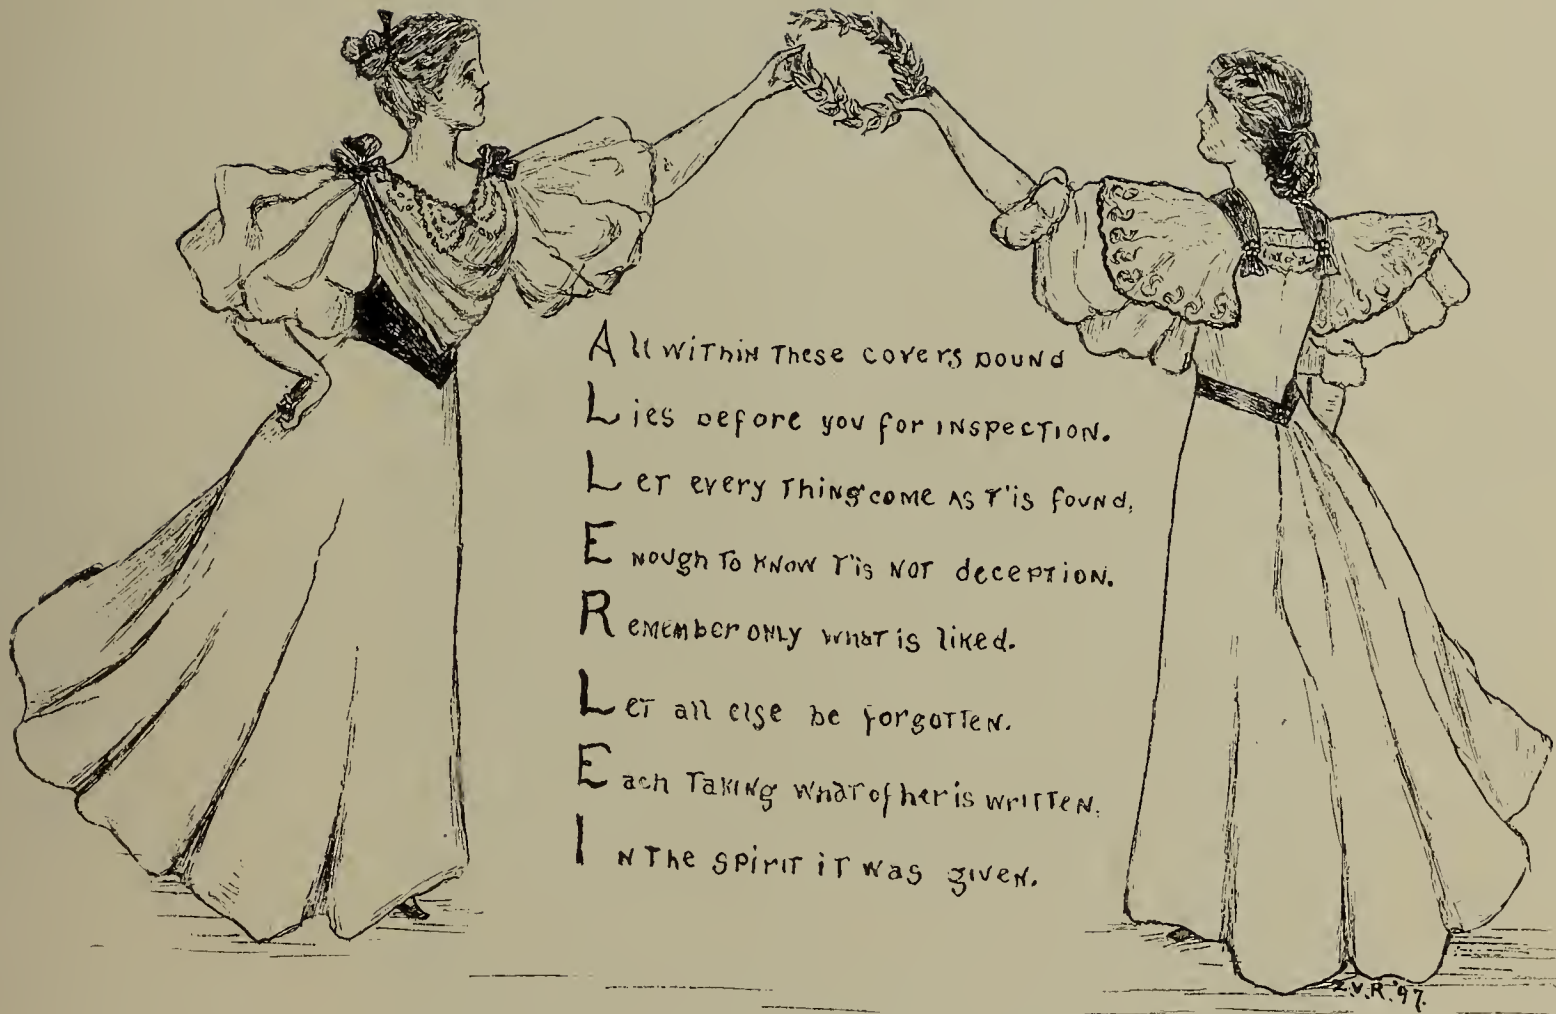 All within these covers bound
Lies before you for inspection.
Let every thing come as t'is found,
Enough to know t'is not deception.
Remember only what is liked.
Let all else be forgotten.
Each taking what of her is written.
In the spirit it was given.
Z.V.R. '97.